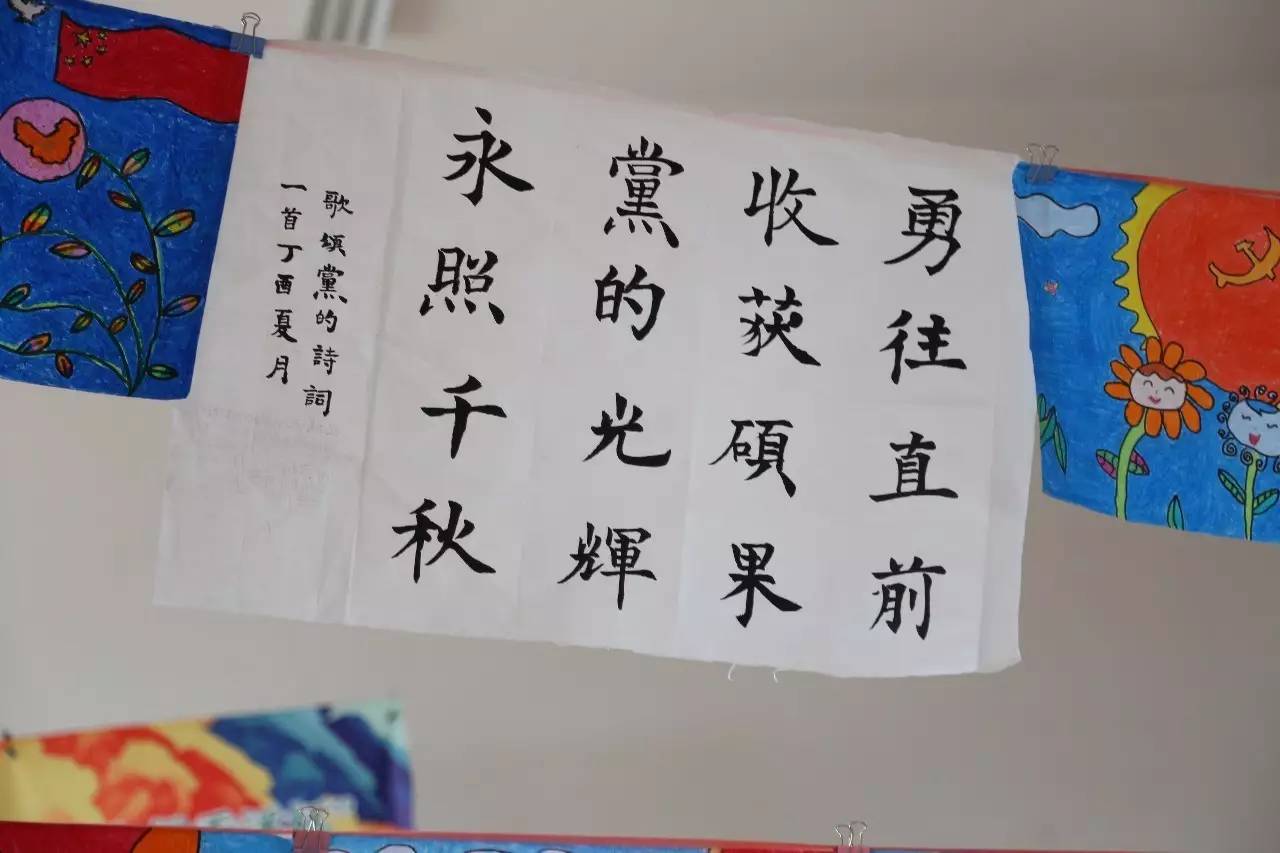 勇往直前
收获碩果
黨的光輝
永照千秋
歌頌黨的詩詞
一首丁酉夏月